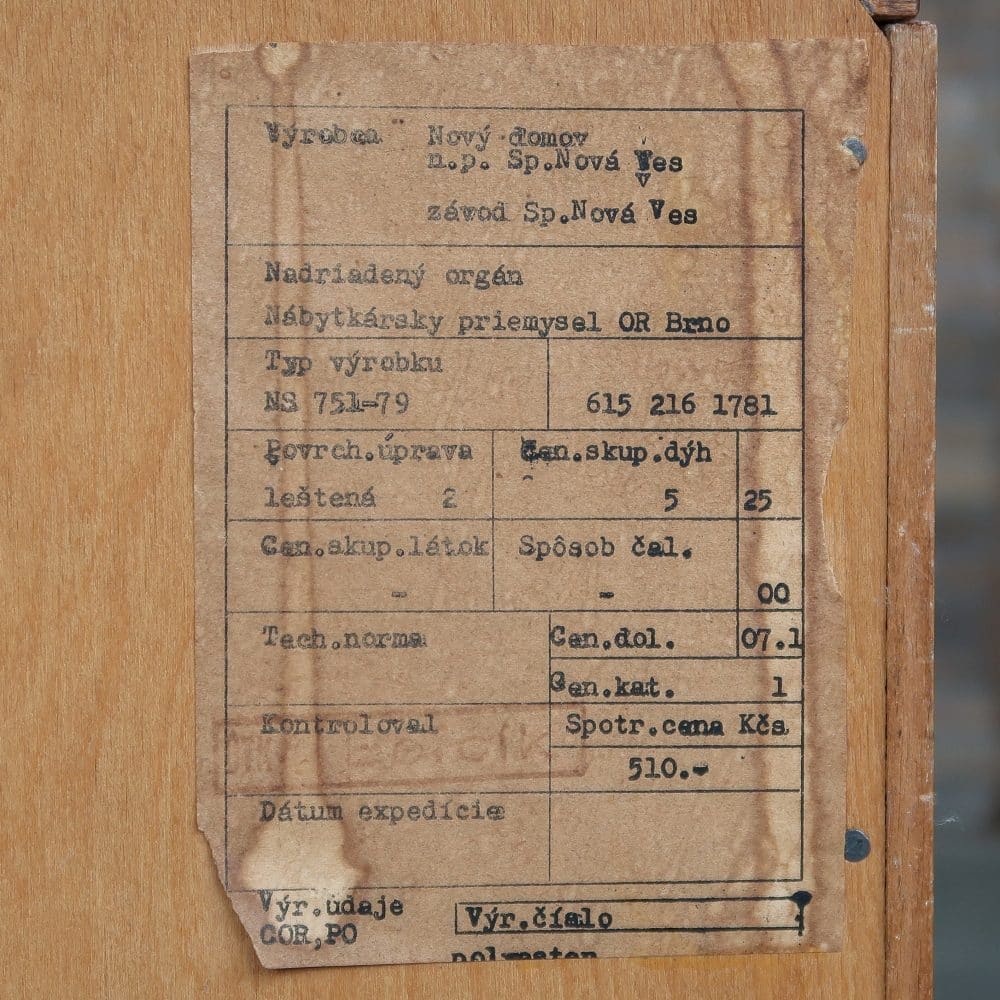 Výrobca Nový domov
n.p. Sp.Nová Ves
závod Sp.Nová Ves
Nadriadený orgán
Nábytkársky priemysel OR Brno
Typ výrobku
NS 751-79 615 216 1781
Povrch.úprava Cen.skup.dýh
leštená 2 5 25
Cen.skup.látok Spôsob čal.
- - 00
Tech.norma Cen.dol. 07.1
Cen.kat. 1
Kontroloval Spotr.cena Kčs
510.-
Dátum expedície
Výr.údaje Výr.číslo
COR,PO